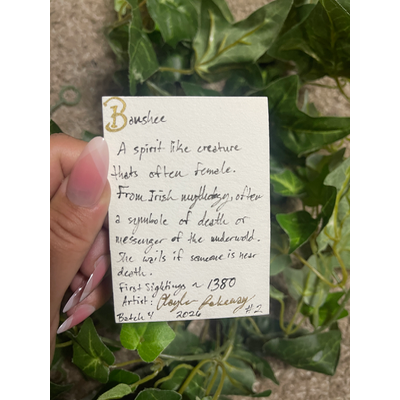 Banshee
A spirit like creature
thats often female.
From Irish mythology, often
a symbole of death or
messenger of the underwold.
She wails if someone is near
death.
First Sightings ~ 1380
Artist:
Batch 4 2026 #2